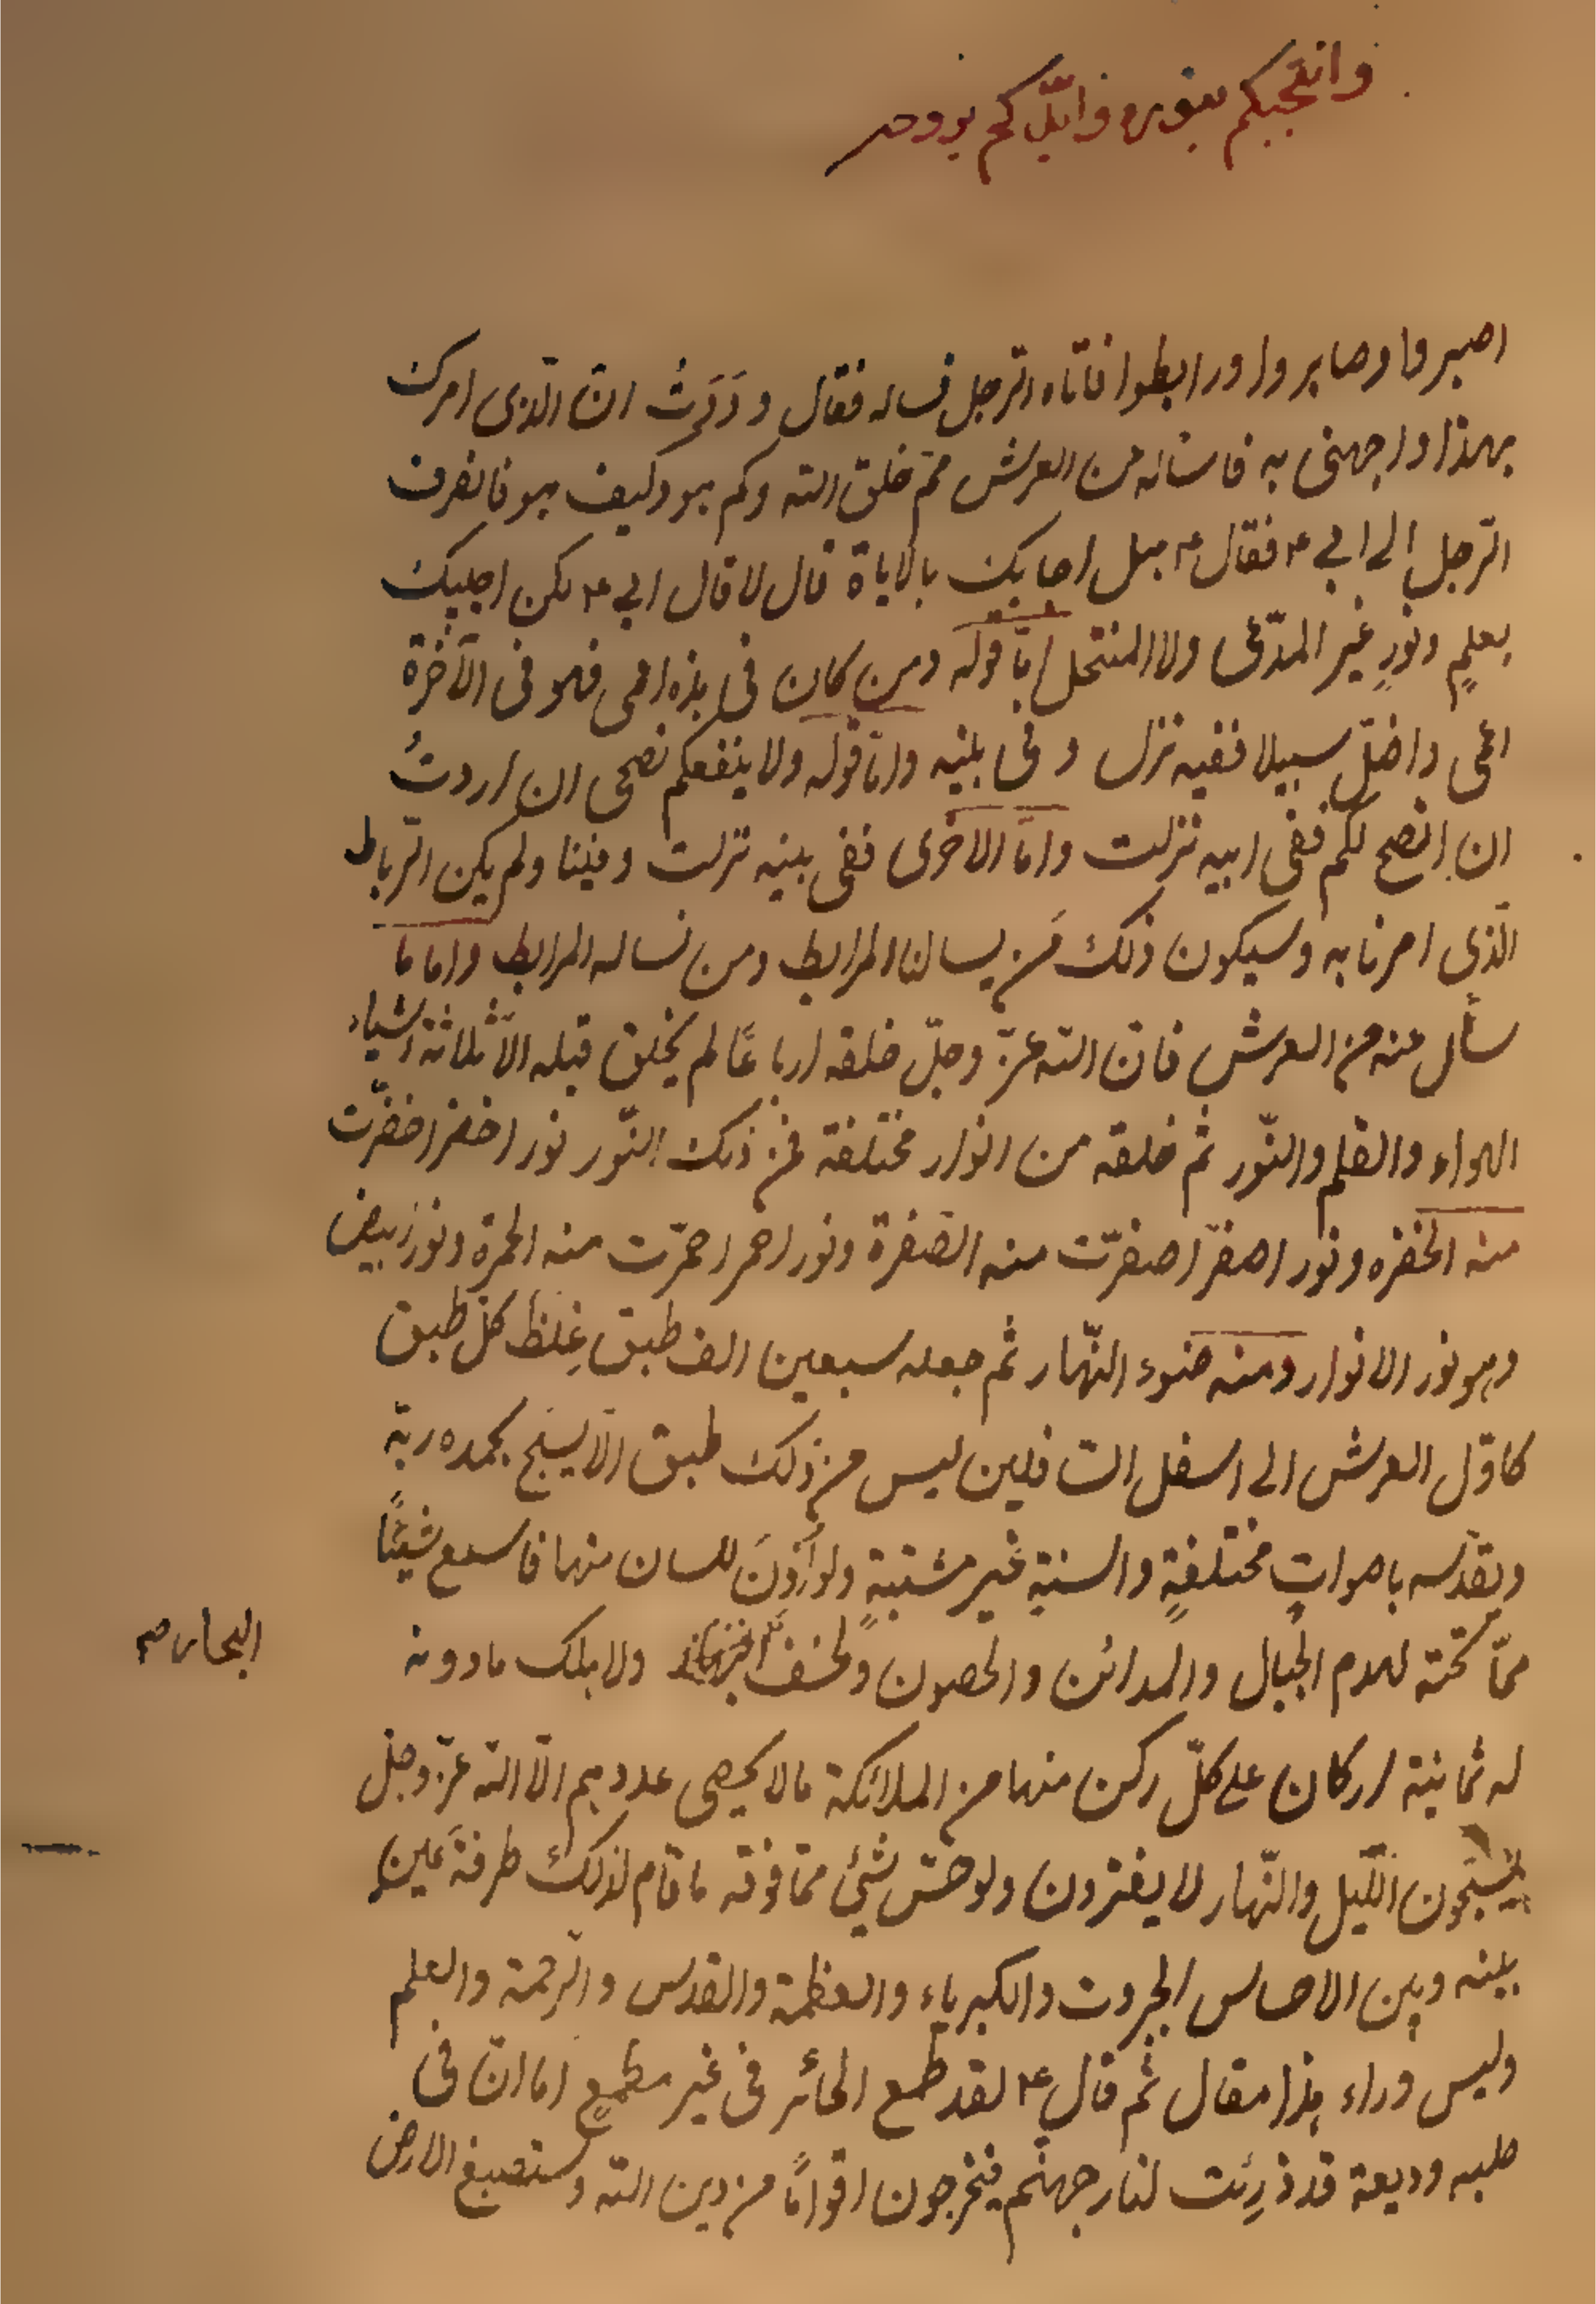 وانتجبكم بنوره وايّدكم بروحه
اصبروا وصابروا ورابطوا فاتاه الرّجل فساله فقال وَدَدَتُ انّ الّذى امرك
بهذا واجهنى به فاسئاله من العرش ممّ خلق الله وكم هو وكيف هو فانصرف
الرّجل الى ابى ع فقال ع هل اجابك بالاياة قال لا قال ابى ع لكن اجيبك
بعلمٍ ونورٍ غير المدّعى ولا المنتحل امّا قوله ومن كان فى هذه اعمى فهو فى الآخرة
اعمى واضلّ سبيلا ففيه نزل وفى بنيه وامّا قوله ولا ينفعكم نصحى ان اردتُ
ان انصح لكم ففى ابيه نزلت وامّا الاخرى ففى بنيه نزلت وفينا ولم يكن الرّباط
الّذى امرنا به وسيكون ذلك مَن يسالنا المرابط ومن نساله المرابط واما ما
سأل عنه من العرش فانّ الله عزّ وجلّ خلقه ارباعًا لم يخلق قبله الّا ثلاثة اشياء
الهواء والقلم والنّور ثم خلقه من انوار مختلفة فمن ذلك النّور نور اخضر اخضرّت
منه الخضره ونور اصفر اصفرّت منه الصّفرة ونور احمر احمرّت منه الحمرة ونور ابيض
وهو نور الانوار ومنه ضوء النّهار ثم جعله سبعين الف طبق غِلَظ كلّ طبق
كاوّل العرش الى اسفل السّافلين ليس من ذلك طبق الّا يسبّح بحمده ربّه
ويقدّسه باصواتٍ مختلفةٍ والسنةٍ غير مشتبهةٍ ولو اُذِنَ للسان منها فاسمع شيئًا
ممّا تحته لهدم الجبال والمدائن والحصون ولخسف ولاهلك مادونه
البحار صح
له ثمانية اركان على كلّ ركن منها من الملائكة مالا يحصى عددهم الّا الله عزّ وجلّ
يسبّحون اللّيل والنّهار لا يفترون ولو حسّ شئ ممّا فوقه ما قام لذلك طرفة عينٍ
بينه وبين الاحساس الجبروت والكبرياء والعظمة والقدس والرّحمة والعلم
وليس وراء هذا مقال ثم قال ع لقد طمع الحائر فى غير مطمعٍ اما انّ فى
صلبه وديعة قد ذرِئت لنار جهنّم فيخرجون اقوامًا من دين الله وستصبغ الارض